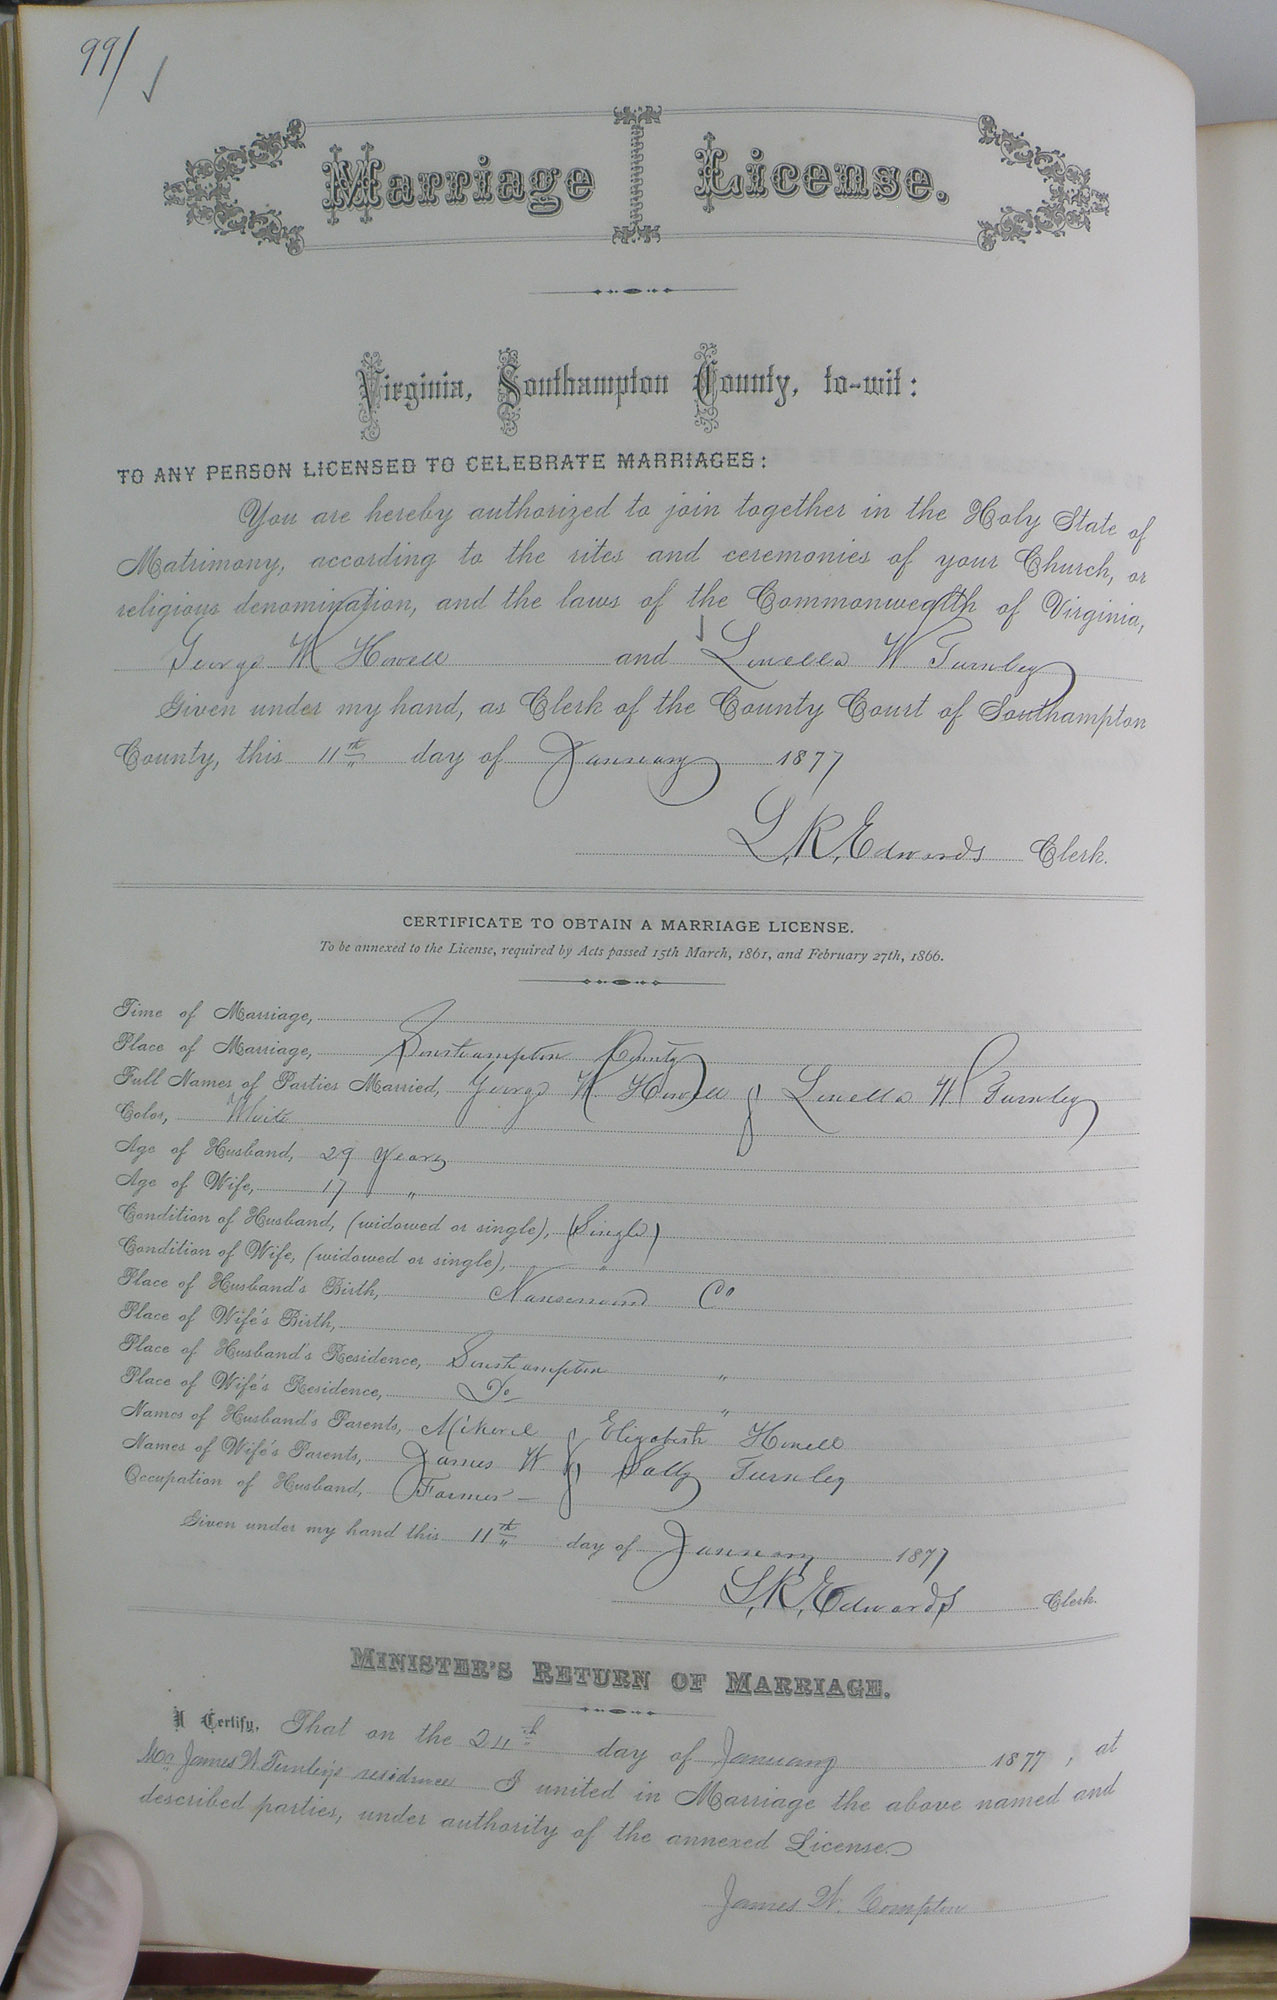 99/
Marriage License.
Virginia, Southampton County, to-wit:
TO ANY PERSON LICENSED TO CELEBRATE MARRIAGES:
You are hereby authorized to join together in the Holy State of
Matrimony, according to the rites and ceremonies of your Church, or
religious denomination, and the laws of the Commonwealth of Virginia,
George W Howell and Louella W Turnley
Given under my hand, as Clerk of the County Court of Southampton
County, this 11th day of January 1877
L, R, Edwards Clerk.
CERTIFICATE TO OBTAIN A MARRIAGE LICENSE.
To be annexed to the License, required by Acts passed 15th March, 1861, and February 27th, 1866.
Time of Marriage,
Place of Marriage, Southampton County
Full Names of Parties Married, George W Howell & Louella W Turnley
Color, White
Age of Husband, 29 Years
Age of Wife, 17 "
Condition of Husband, (widowed or single), (Single)
Condition of Wife, (widowed or single), "
Place of Husband's Birth, Nansemond Co
Place of Wife's Birth,
Place of Husband's Residence, Southampton "
Place of Wife's Residence, Do "
Names of Husband's Parents, & Elizabeth Howell
Names of Wife's Parents, James W & Sally Turnley
Occupation of Husband, Farmer -
Given under my hand this 11th day of January 1877
L, R, Edwards Clerk.
MINISTER'S RETURN OF MARRIAGE.
I Certify, That on the day of January 1877, at
Mr James W Turnley's residence I united in Marriage the above named and
described parties, under authority of the annexed License
James W. Compton